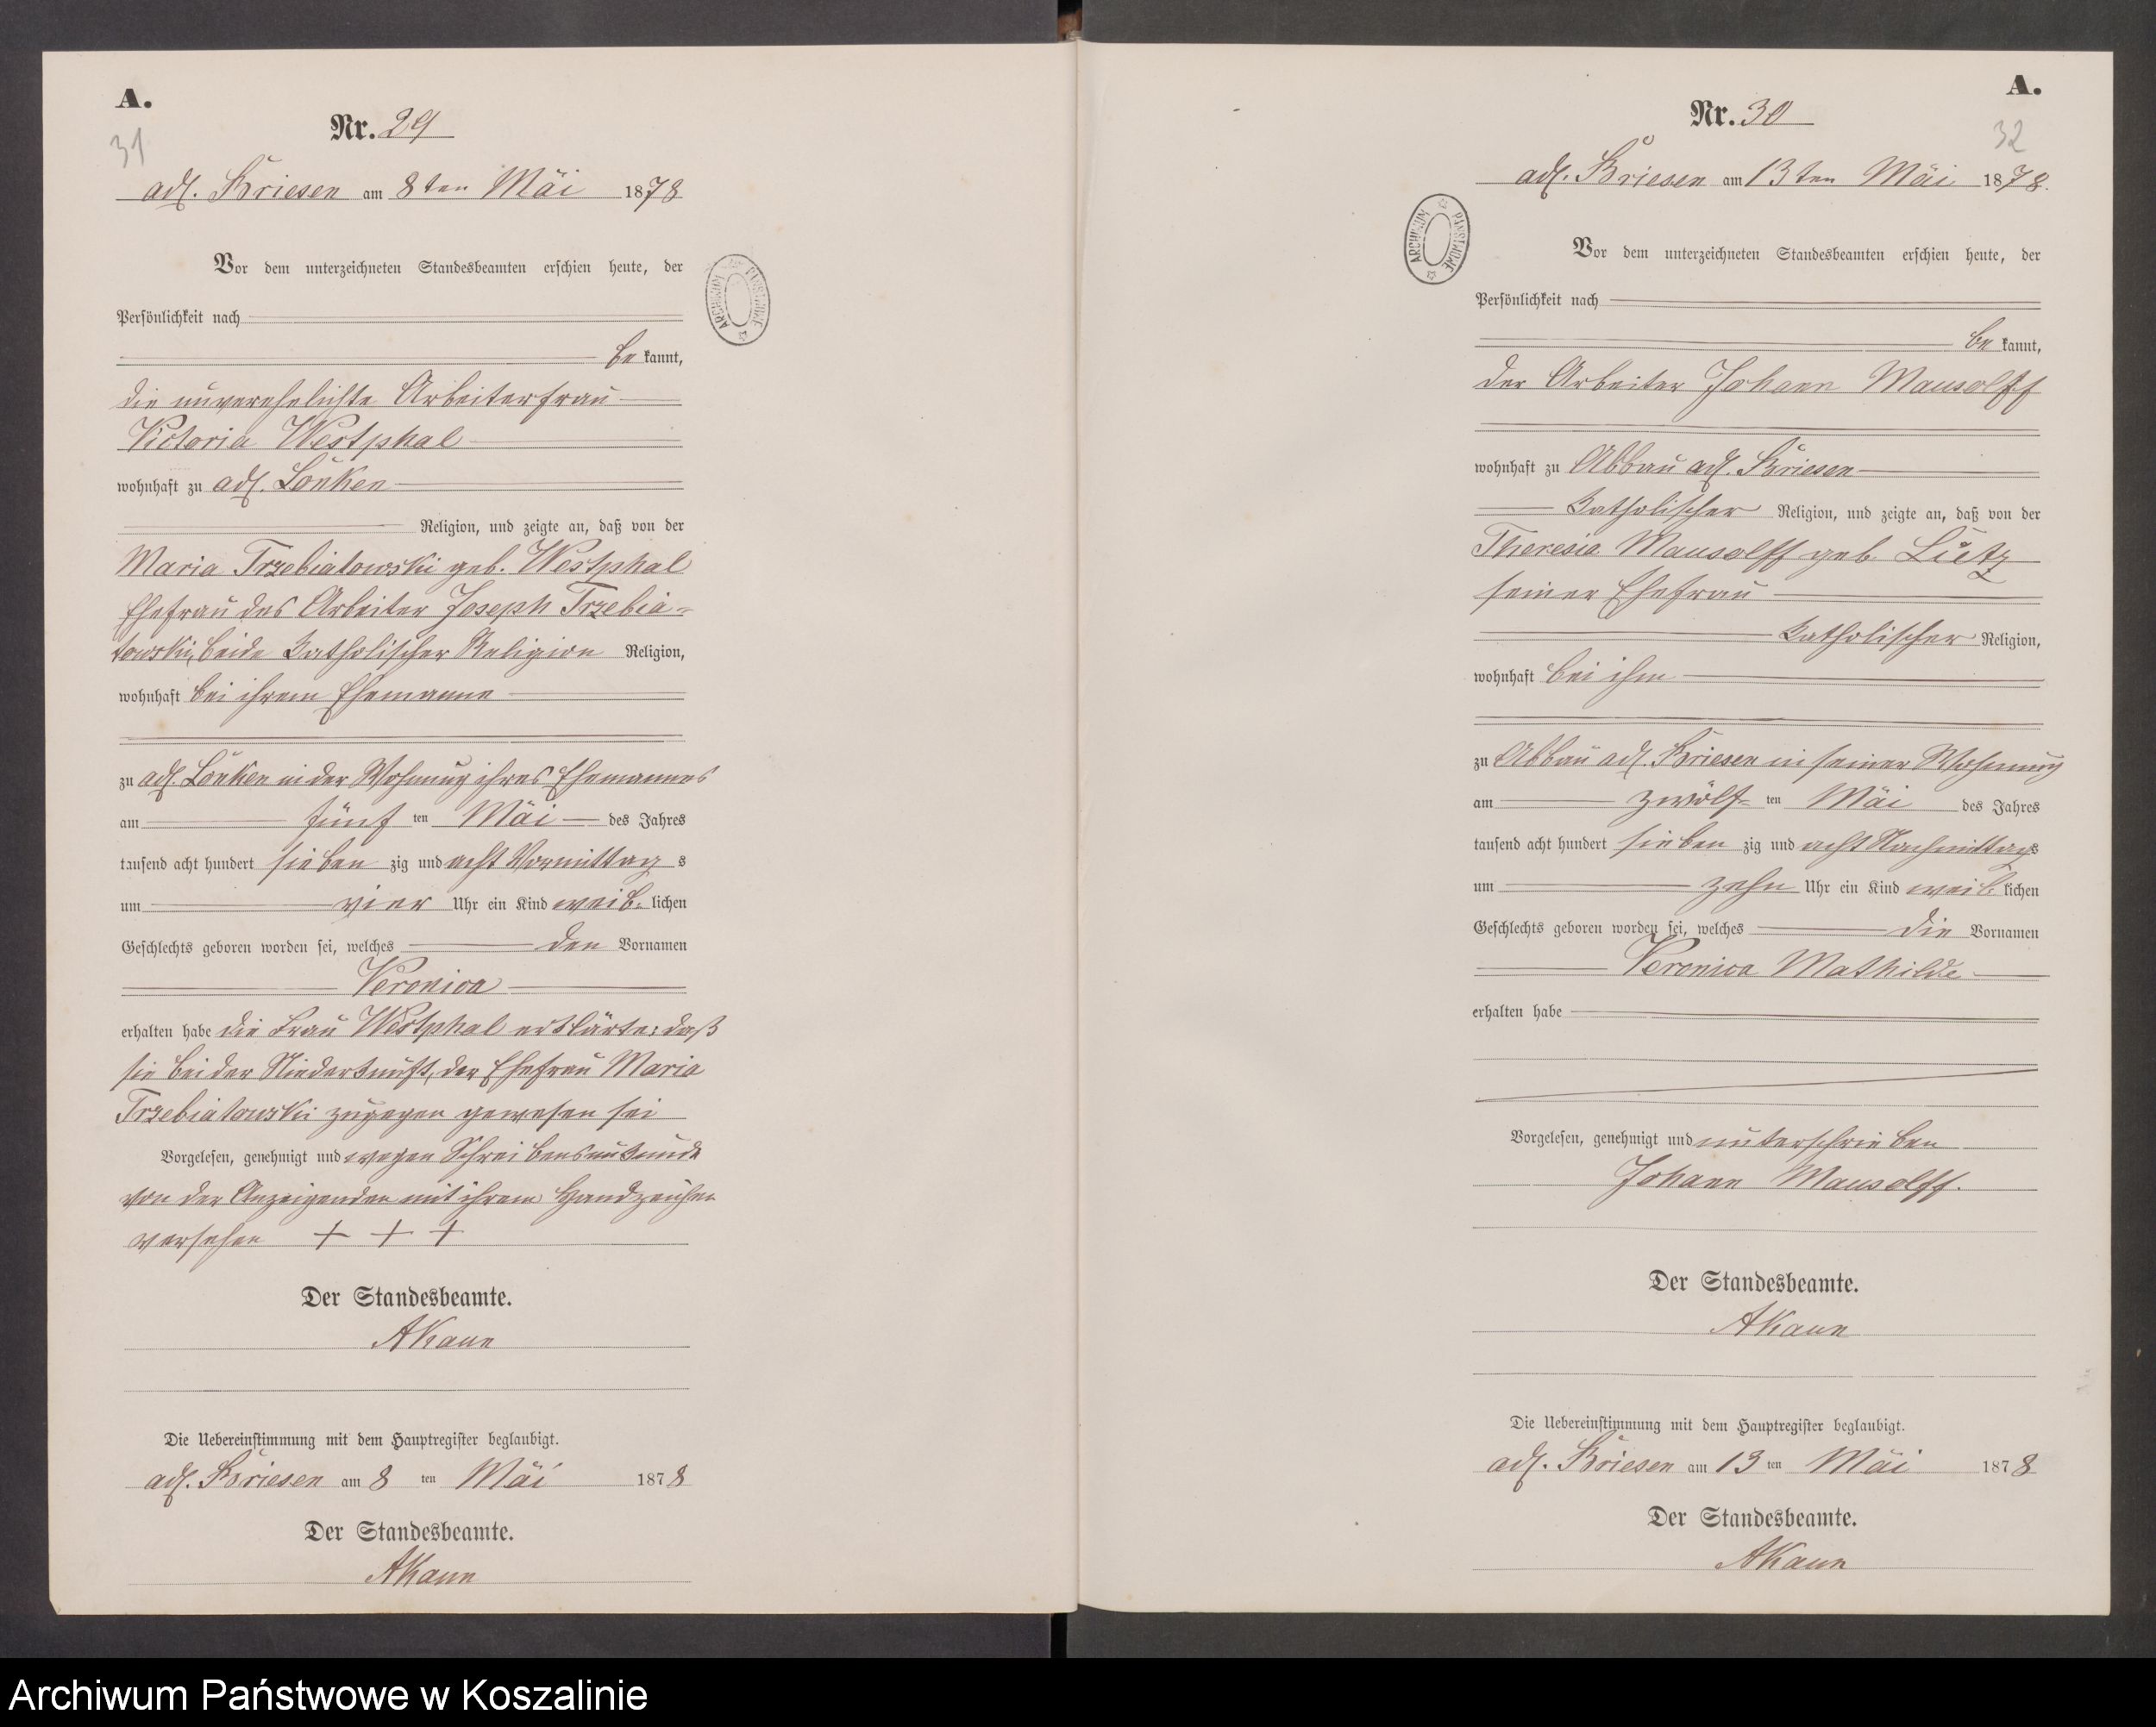 A.
31
Nr. 29
adl. Briesen am 8ten Mäi 1878
Vor dem unterzeichneten Standesbeamten erschien heute, der
Persönlichkeit nach
be kannt,
die unverehelichte Arbeiterfrau
Victoria Westphal
wohnhaft zu adl. Lonken
Religion, und zeigte an, daß von der
Maria Trzebiatowski geb. Westphal
Ehefrau des Arbeiter Joseph Trzebia-
towski, beide Katholischer Religion Religion,
wohnhaft bei ihrem Ehemanne
zu adl. Lonken in der Wohnung ihres Ehemannes
am fünf ten Mäi des Jahres
tausend acht hundert sieben zig und acht Vormittag s
um vier Uhr ein Kind weib- lichen
Geschlechts geboren worden sei, welches den Vornamen
Veronica
erhalten habe die Frau Westphal erklärte: daß
sie bei der Niederkunft, der Ehefrau Maria
Trzebiatowski zugegen gewesen sei
Vorgelesen, genehmigt und wegen Schreibensunkunde
von der Anzeigenden mit ihrem Handzeichen
versehen + + +
Der Standesbeamte.
AKaun
Die Uebereinstimmung mit dem Hauptregister beglaubigt.
adl. Briesen am 8 ten Mäi 1878
Der Standesbeamte.
AKaun
ARCHIWUM PAŃSTWOWE
A.
32
Nr. 30
adl. Briesen am 13ten Mäi 1878.
Vor dem unterzeichneten Standesbeamten erschien heute, der
Persönlichkeit nach
be kannt,
der Arbeiter Johann Mausolff
wohnhaft zu Abbau adl. Briesen
Katholischer Religion, und zeigte an, daß von der
Theresia Mausolff geb. Lietz
seiner Ehefrau
Katholischer Religion,
wohnhaft bei ihm
zu Abbau adl. Briesen in seiner Wohnung
am zwölf- ten Mäi des Jahres
tausend acht hundert sieben zig und acht Nachmittags
um zehn Uhr ein Kind weib- lichen
Geschlechts geboren worden sei, welches die Vornamen
Veronica Mathilde
erhalten habe
Vorgelesen, genehmigt und unterschrieben
Johann Mausolff.
Der Standesbeamte.
AKaun
Die Uebereinstimmung mit dem Hauptregister beglaubigt.
adl. Briesen am 13 ten Mäi 1878
Der Standesbeamte.
AKaun
ARCHIWUM PAŃSTWOWE
Archiwum Państwowe w Koszalinie